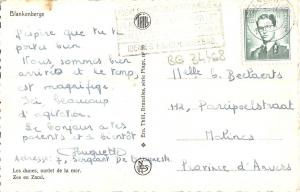 Blankenberge
J'espère que tu te
portes bien.
Nous sommes bien
arrivés et le temps
est magnifique.
J'ai beaucoup
d'agitation.
Le bonjour à tes
parents et à bientôt
Huguette
Adresse: 7, Sergeant De
Les dunes, ourlet de la mer.
Zee en Zand.
Ern. Thill, Bruxelles, série
BG 2458
Melle G. Bectaerts
112, Pariipoelstraat
Malines
Province d'Anvers